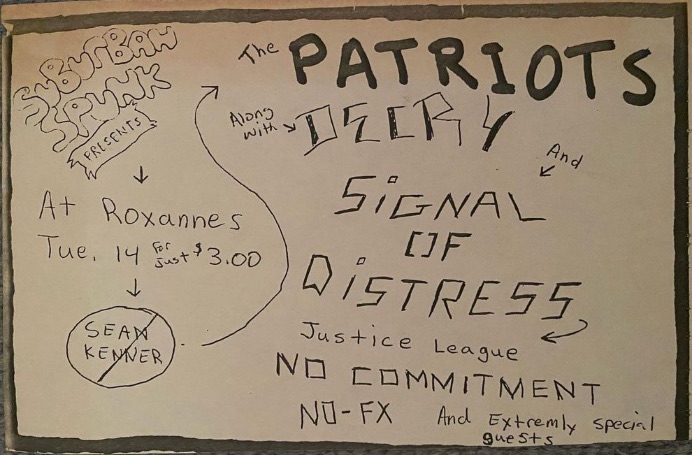 SUBURBAN
SPUNK
PRESENTS
At Roxannes
Tue, 14 for Just $3.00
SEAN
KENNER
The PATRIOTS
Along with DECRY
And
SiGNAL
OF
DiSTRESS
Justice League
NO COMMITMENT
NO-FX And Extremly special
guests